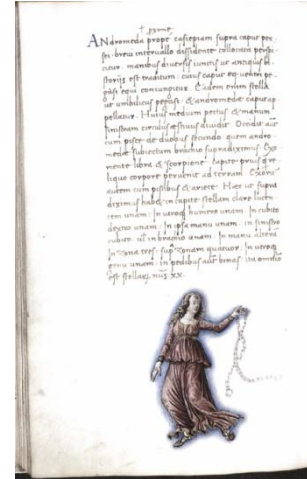 ANdromeda prope casiepiam supra caput per
sei breui interuallo dissidente collocata perspi
citur. manibus diuersis uinctis ut antiquis hi
storijs est traditum: cuius caput equi uentri pe
gasi conjungitur. Eadem enim stella
et umbilicus pegasi: & andromedae caput ap
pellatur. Huius medium pectus & manum
sinistram circulus aestiuus diuidit. Occidit aut
cum pisce de duobus secundo quem andro
medae subiectum brachio supradiximus. Exo
riente libra & scorpione capite prius q re
liquo corpore peruenit ad terram. Exorit
autem cum piscibus & ariete. Haec ut supra
diximus habet in capite stellam clare lucen
tem unam: in utroq humero unam. In cubito
dextro unam. In ipsa manu unam. in sinistro
cubito in brachio unam. In manu altera
In Zona tres: sup Zonam quatuor. In utroq
genu unam: in pedibus aut binas. ita omnino
est stellarum nus XX.